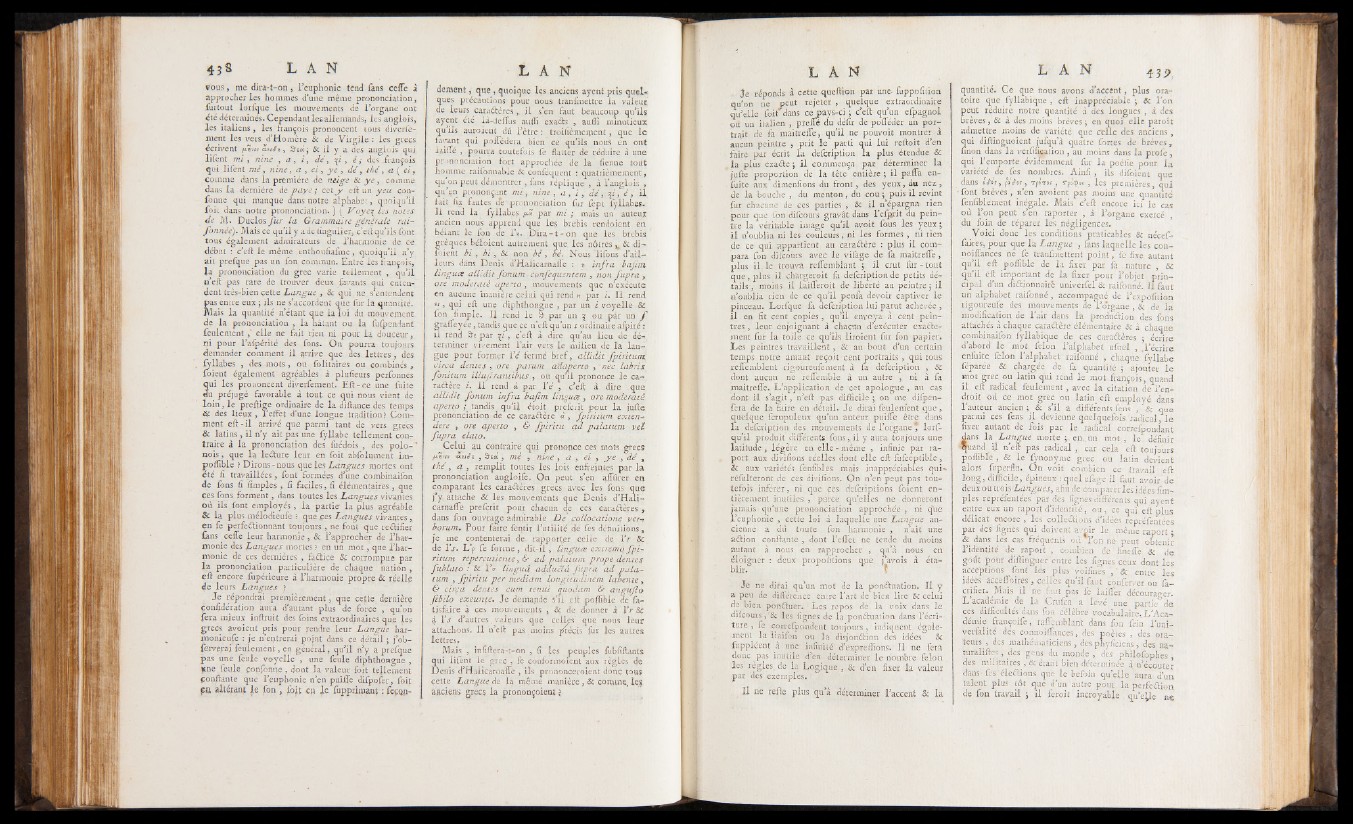 438 L A N
vous, me dira-t-on, l'euphonie tend sans cesse à
approcher les hommes d'une même prononciation,
surtout lorsque les mouvements de l'organe ont
été déterminés. Cependant les allemands, les anglois,
les italiens, les françois prononcent tous diverse-
ment les vers d'Homère & de Virgile : les grecs
écrivent μῆνιν ἄειδε, θεά, & il y a des anglois qui
lisent mi, nine, a, i, dé, zi, é; des françois
qui lisent mé, nine, a, ei, ye, dé, thé, a ( ei,
comme dans la première de neige & ye, comme
dans la dernière de paye ; cet y est un yeu con-
sonne qui manque dans notre alphabet, quoiqu'il
soit dans notre prononciation. ) ( Voyez les notes
de M. Duclos sur la Grammaire générale rai-
sonnée). Mais ce qu'il y a de singulier, c'est qu'ils sont
tous également admirateurs de l'harmonie de ce
début : c'est le même enthousiasme, quoiqu'il n'y
ait presque pas un son commun. Entre les françois,
la prononciation du grec varie tellement, qu'il
n'est pas rare de trouver deux savants qui enten-
dent très-bien cette Langue, & qui ne s'entendent
pas entre eux ; ils ne s'accordent que sur la quantité.
Mais la quantité n'étant que la loi du mouvement
de la prononciation, la hâtant ou la suspendant
seulement, elle ne fait rien ni pour la douceur,
ni pour l'aspérité des sons. On pourra toujours
demander comment il arrive que des lettres, des
syllabes, des mots, ou solitaires ou combinés,
soient également agréables à plusieurs personnes
qui les prononcent diversement. Est-ce une suite
du préjugé favorable à tout ce qui nous vient de
loin, le prestige ordinaire de la distance des temps
& des lieux, l'effet d'une longue tradition ? Com-
ment est-il arrivé que parmi tant de vers grecs
& latins, il n'y ait pas une syllabe tellement con-
traire à la prononciation des suédois, des polo-
nois, que la lecture leur en soit absolument im-
possible ? Dirons-nous que les Langues mortes ont
été si travaillées, sont formées d'une combinaison
de sons si simples, si faciles, si élémentaires, que
ces sons forment, dans toutes les Langues vivantes
où ils sont employés, la partie la plus agréable
& la plus mélodieuse : que ces Langues vivantes,
en se perfectionnant toujours, ne font que rectifier
sans cesse leur harmonie, & l'approcher de l'har-
monie des Langues mortes : en un mot, que l'har-
monie de ces dernières, factice & corrompue par
la prononciation particulière de chaque nation,
est encore supérieure à l'harmonie propre & réelle
de leurs Langues ?
Je répondrai premièrement, que cette dernière
considération aura d'autant plus de force, qu'on
sera mieux instruit des soins extraordinaires que les
grecs avoient pris pour rendre leur Langue har-
monieuse : je n'entrerai point dans ce détail ; j'ob-
serverai seulement, en général, qu'il n'y a presque
pas une seule voyelle, une seule diphthongue,
une seule consonne, dont la valeur soit tellement
constante que l'euphonie n'en puisse disposer, soit
en altérant le son, soit en le supprimant : secon-
L A N
dement, que, quoique les anciens ayent pris quel-
ques précautions pour nous transmettre la valeur
de leurs caractères, il s'en faut beaucoup qu'ils
ayent été là-dessus aussi exacts, aussi minutieux
qu'ils auroient dû l'être : troisièmement, que le
savant qui possédera bien ce qu'ils nous en ont
laissé, pourra toutefois se flatter de réduire à une
prononciation fort approchée de la sienne tout
homme raisonnable & conséquent : quatrièmement,
qu'on peut démontrer, sans réplique, à l'anglois,
qu'en prononçant mi, nine, a, i, dé, zi, é, il
fait six fautes de prononciation sur sept syllabes.
Il rend la syllabes μῆ par mi ; mais un auteur
ancien nous apprend que les brebis rendoient en
bêlant le son de l'η. Dira-t-on que les brebis
grèques bêloient autrement que les nôtres, & di-
soient bi, bi, & non bé, bé. Nous lisons d'ail-
leurs dans Denis d'Halicarnasse : η infra basim
linguæ allidit sonum consequentem, non supra,
ore moderatè aperto, mouvements que n'exécute
en aucune manière celui qui rend η par i. Il rend
ει, qui est une diphthongue, par un i voyelle &
son simple. Il rend le θ par un z ou par un s
grasseyée, tandis que ce n'est qu'un t ordinaire aspiré :
il rend θε par zi, c'est à dire qu'au lieu de dé-
terminer vivement l'air vers le milieu de la lan-
gue pour former l'é fermé bref, allidit spiritum
circa dentes, ore parum adaperto, nec labris
sonitum illustrantibus, ou qu'il prononce le ca-
ractère i. Il rend α par l'é, c'est à dire que
allidit sonum infra basim linguæ, ore moderatè
aperto ; tandis qu'il étoit prescrit pour la juste
prononciation de ce caractère α, spiritum exten-
dere, ore aperto, & spiritu ad palatum vel
supra elato.
Celui au contraire qui prononce ces mots grecs
μῆνιν ἄειδε, θεά, mé, nine, a, ei, ye, dé,
thé, a, remplit toutes les lois enfreintes par la
prononciation angloise. On peut s'en assûrer en
comparant les caractères grecs avec les sons que
j'y attache & les mouvements que Denis d'Hali-
carnasse prescrit pour chacun de ces caractères,
dans son ouvrage admirable De collocatione ver-
borum. Pour faire sentir l'utilité de ses définitions,
je me contenterai de rapporter celle de l'r &
de l's. L'r se forme, dit-il, linguæ extremo spi-
ritum repercutiente, & ad palatum prope dentes
sublato : & l's linguâ adductâ supra ad pala-
tum, spiritu per mediam longitudinem labente,
& circa dentes cum tenui quodam & angusto
sibilo exeunte. Je demande s'il est possible de sa-
tisfaire à ces mouvements, & de donner à l'r &
à l's d'autres valeurs que celles que nous leur
attachons. Il n'est pas moins précis sur les autres
lettres.
Mais, insistera-t-on, si les peuples subsistants
qui lisent le grec, se conformoient aux règles de
Denis d'Halicarnasse, ils prononceroient donc tous
cette Langue de la même manière, & comme les
anciens grecs la prononçoient ?
L A N
Je réponds à cette question par une supposition
qu'on ne peut rejeter, quelque extraordinaire
qu'elle soit dans ce pays-ci ; c'est qu'un espagnol
ou un italien, pressé du desir de posséder un por-
trait de sa maitresse, qu'il ne pouvoit montrer à
aucun peintre, prit le parti qui lui restoit d'en
faire par écrit la description la plus étendue &
la plus exacte ; il commença par déterminer la
juste proportion de la tête entière ; il passa en-
suite aux dimensions du front, des yeux, du nez,
de la bouche, du menton, du cou ; puis il revint
sur chacune de ces parties, & il n'épargna rien
pour que son discours gravât dans l'esprit du pein-
tre la véritable image qu'il avoit sous les yeux ;
il n'oublia ni les couleurs, ni les formes, ni rien
de ce qui appartient au caractère : plus il com-
para son discours avec le visage de sa maitresse,
plus il le trouva ressemblant ; il crut sur-tout
que, plus il chargeroit sa description de petits dé-
tails, moins il laisseroit de liberté au peintre ; il
n'oublia rien de ce qu'il pensa devoir captiver le
pinceau. Lorsque sa description lui parut achevée,
il en fit cent copies, qu'il envoya à cent pein-
tres, leur enjoignant à chacun d'exécuter exacte-
ment sur la toile ce qu'ils liroient sur son papier.
Les peintres travaillent, & au bout d'un certain
temps notre amant reçoit cent portraits, qui tous
ressemblent rigoureusement à sa description, &
dont aucun ne ressemble à un autre, ni à sa
maitresse. L'application de cet apologue, au cas
dont il s'agit, n'est pas difficile ; on me dispen-
sera de la faire en détail. Je dirai seulement que,
quelque scrupuleux qu'un auteur puisse être dans
la description des mouvements de l'organe, lors-
qu'il produit différents sons, il y aura toujours une
latitude, légère en elle-même, infinie par ra-
port aux divisions réelles dont elle est susceptible,
& aux variétés sensibles mais inappréciables qui
résulteront de ces divisions. On n'en peut pas tou-
tefois inférer, ni que ces descriptions soient en-
tièrement inutiles, parce qu'elles ne donneront
jamais qu'une prononciation approchée, ni que
l'euphonie, cette loi à laquelle une Langue an-
cienne a dû toute son harmonie, n'ait une
action constante, dont l'effet ne tende du moins
autant à nous en rapprocher, qu'à nous en
éloigner : deux propositions que j'avois à éta-
blir.
Je ne dirai qu'un mot de la ponctuation. Il y
a peu de différence entre l'art de bien lire & celui
de bien ponctuer. Les repos de la voix dans le
discours, & les signes de la ponctuation dans l'écri-
ture, se correspondent toujours, indiquent égale-
ment la liaison ou la disjonction des idées &
suppléent à une infinité d'expressions. Il ne sera
donc pas inutile d'en déterminer le nombre selon
les règles de la Logique, & d'en fixer la valeur
par des exemples.
Il ne reste plus qu'à déterminer l'accent & la
L A N 439
quantité. Ce que nous avons d'accent, plus ora-
toire que syllabique, est inappréciable ; & l'on
peut réduire notre quantité à des longues, à des
brèves, & à des moins brèves ; en quoi elle paroît
admettre moins de variété que celle des anciens,
qui distinguoient jusqu'à quatre sortes de brèves,
sinon dans la versification, au moins dans la prose,
qui l'emporte évidemment sur la poésie pour la
variété de ses nombres. Ainsi, ils disoient que
dans les premières, qui
sont brèves, n'en avoient pas moins une quantité
sensiblement inégale. Mais c'est encore ici le cas
où l'on peut s'en raporter, à l'organe exercé,
du soin de réparer les négligences.
Voici donc les conditions praticables & néces-
saires, pour que la Langue, sans laquelle les con-
noissances ne se transmettent point, se fixe autant
qu'il est possible de la fixer par sa nature, &
qu'il est important de la fixer pour l'objet prin-
cipal d'un dictionnaire universel & raisonné. Il faut
un alphabet raisonné, accompagné de l'exposition
rigoureuse des mouvements de l'organe, & de la
modification de l'air dans la production des sons
attachés à chaque caractère élémentaire & à chaque
combinaison syllabique de ces caractères ; écrire
d'abord le mot selon l'alphabet usuel, l'écrire
ensuite selon l'alphabet raisonné, chaque syllabe
séparée & chargée de sa quantité ; ajouter le
mot grec ou latin qui rend le mot françois, quand
il est radical seulement, avec la citation de l'en-
droit où ce mot grec ou latin est employé dans
l'auteur ancien ; & s'il a différents sens, & que
parmi ces sens il devienne quelquefois radical, le
fixer autant de fois par le radical correspondant
dans la Langue morte ; en un mot, le définir
quand il n'est pas radical, car cela est toujours
possible, & le synonyme grec ou latin devient
alors superflu. On voit combien ce travail est
long, difficile, épineux : quel usage il faut avoir de
deux ou trois Langues, afin de comparer les idées sim-
ples représentées par des signes différents qui ayent
entre eux un raport d'identité, ou, ce qui est plus
délicat encore, les collections d'idées représentées
par des signes qui doivent avoir le même raport ;
& dans les cas fréquents où l'on ne peut obtenir
l'identité de raport, combien de finesse & de
goût pour distinguer entre les signes ceux dont les
acceptions sont les plus voisines, & entre les
idées accessoires, celles qu'il faut conserver ou sa-
crifier. Mais il ne faut pas se laisser décourager.
L'académie de la Crusca a levé une partie de
ces difficultés dans son célèbre vocabulaire. L'Aca-
démie françoise, rassemblant dans son sein l'uni-
versalité des connoissances, des poètes, des ora-
teurs, des mathématiciens, des physiciens, des na-
turalistes, des gens du monde, des philosophes,
des militaires, & étant bien déterminée à n'écouter
dans ses élections que le besoin qu'elle aura d'un
talent plus tôt que d'un autre pour la perfection
de son travail ; il seroit incroyable qu'elle ne